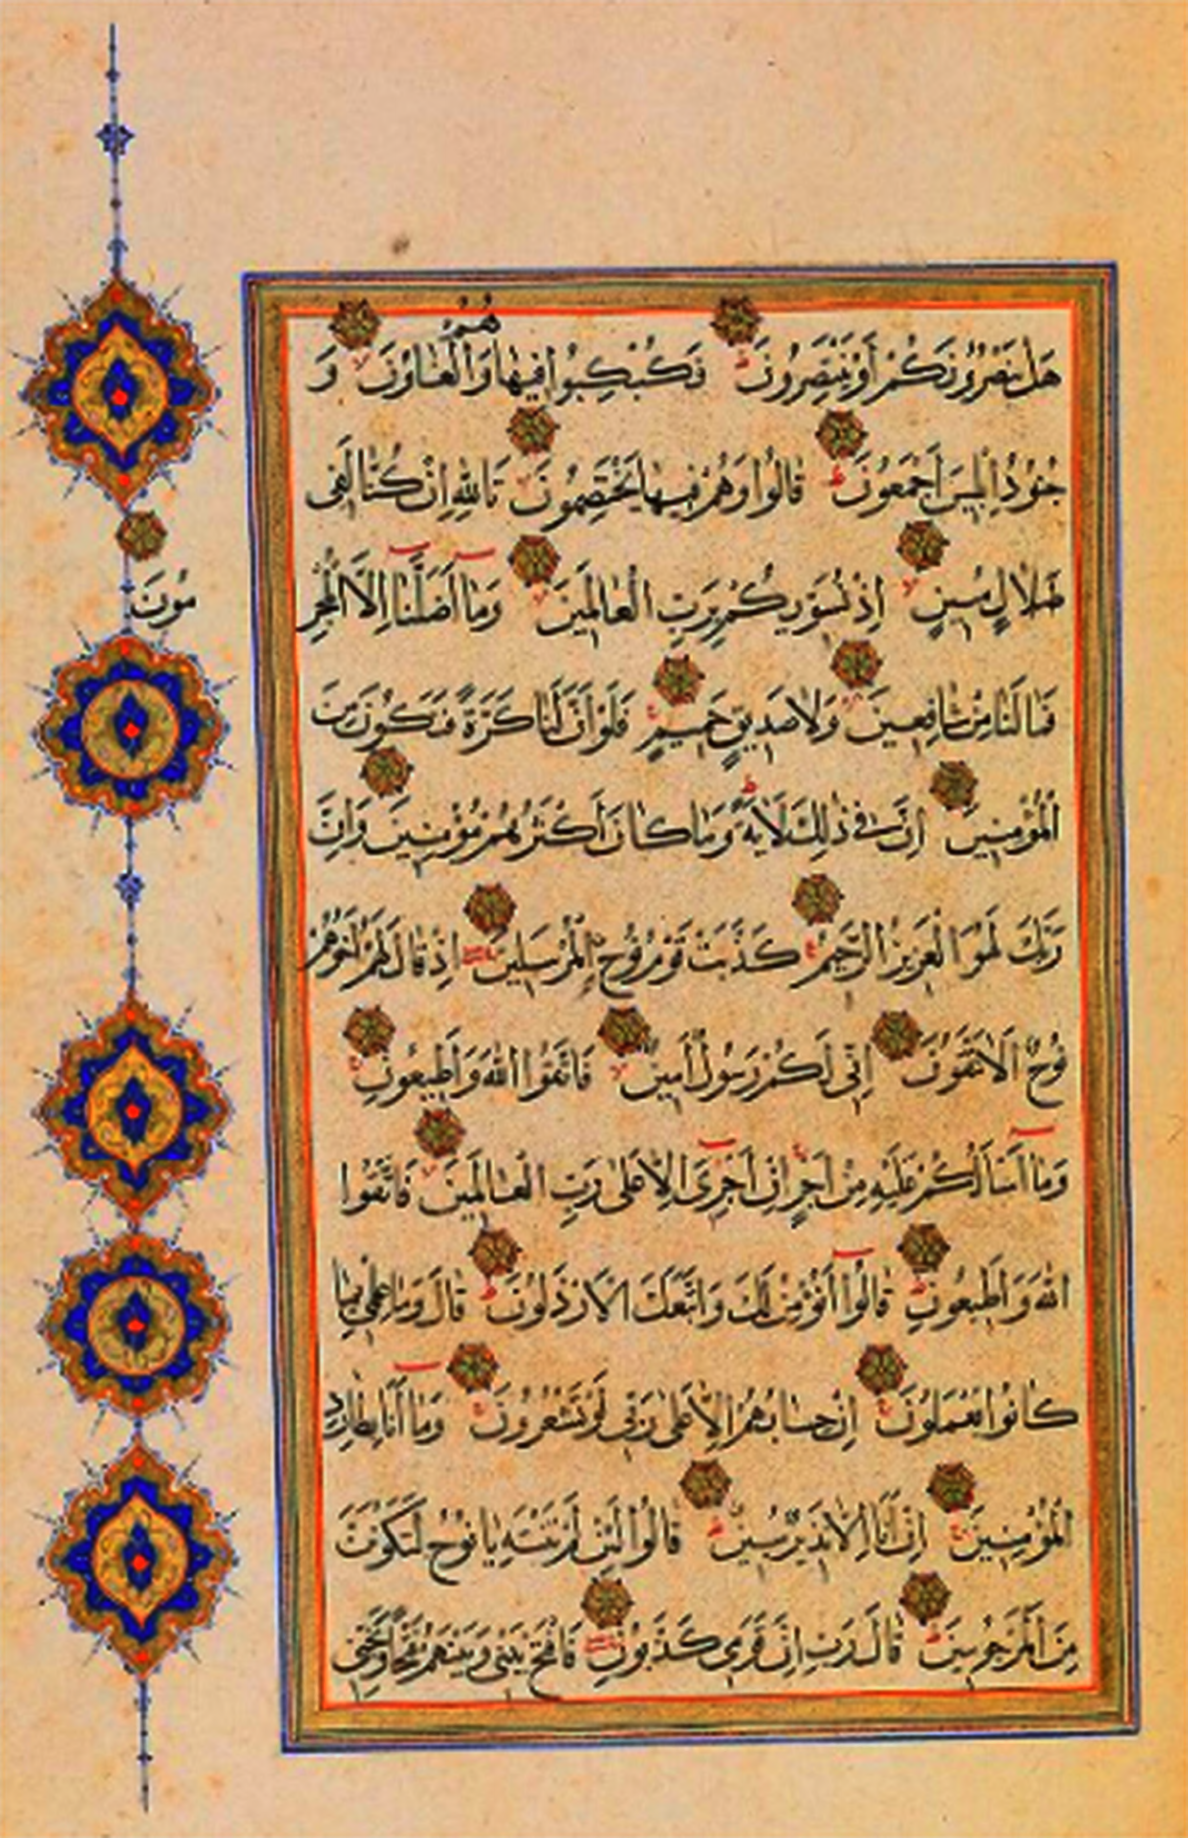 هَلْ يَنْصُرُونَكُمْ أَوْ يَنْتَصِرُونَ فَكُبْكِبُوا فِيهَا هُمْ وَالْغَاوُنَ وَ
جُنُودُ اِبْلِيسَ اَجْمَعُونَ قَالُوا وَهُمْ فِيهَا يَخْتَصِمُونَ تَاللّٰهِ اِنْ كُنَّا لَفِى
ضَلَالٍ مُبِينٍ اِذْ نُسَوِّيكُمْ بِرَبِّ الْعَالَمِينَ وَمَا اَضَلَّنَا اِلَّا الْمُجْرِ
مُونَ
فَمَا لَنَا مِنْ شَافِعِينَ وَلَا صَدِيقٍ حَمِيمٍ فَلَوْ اَنَّ لَنَا كَرَّةً فَنَكُونَ مِنَ
الْمُؤْمِنِينَ اِنَّ فِى ذٰلِكَ لَاٰيَةً وَمَا كَانَ اَكْثَرُهُمْ مُؤْمِنِينَ وَاِنَّ
رَبَّكَ لَهُوَ الْعَزِيزُ الرَّحِيمُ كَذَّبَتْ قَوْمُ نُوحٍ الْمُرْسَلِينَ اِذْ قَالَ لَهُمْ اَخُوهُمْ
نُوحٌ اَلَا تَتَّقُونَ اِنِّى لَكُمْ رَسُولٌ اَمِينٌ فَاتَّقُوا اللّٰهَ وَاَطِيعُونِ
وَمَا اَسْاَلُكُمْ عَلَيْهِ مِنْ اَجْرٍ اِنْ اَجْرِىَ اِلَّا عَلٰى رَبِّ الْعَالَمِينَ فَاتَّقُوا
اللّٰهَ وَاَطِيعُونِ قَالُوا اَنُؤْمِنُ لَكَ وَاتَّبَعَكَ الْاَرْذَلُونَ قَالَ وَمَا عِلْمِى بِمَا
كَانُوا يَعْمَلُونَ اِنْ حِسَابُهُمْ اِلَّا عَلٰى رَبِّى لَوْ تَشْعُرُونَ وَمَا اَنَا بِطَارِدِ
الْمُؤْمِنِينَ اِنْ اَنَا اِلَّا نَذِيرٌ مُبِينٌ قَالُوا لَئِنْ لَمْ تَنْتَهِ يَا نُوحُ لَتَكُونَنَّ
مِنَ الْمَرْجُومِينَ قَالَ رَبِّ اِنَّ قَوْمِى كَذَّبُونِ فَافْتَحْ بَيْنِى وَبَيْنَهُمْ فَتْحًا وَنَجِّنِى